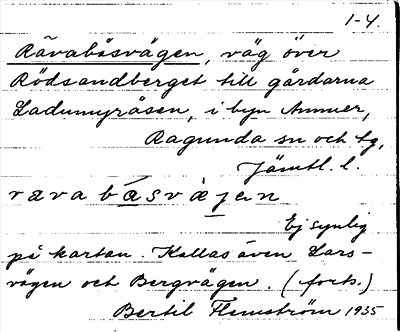 1-4.
Rävabåsvägen, väg över
Rödsandberget till gårdarna
Ladumyråsen, i byn Ammer,
Ragunda sn och tg,
Jämtl. l.
rävabåsväjen
Ej synlig
på kartan. Kallas även Lars-
vägen och Bergvägen. (forts.)
Bertil Flemström 1935